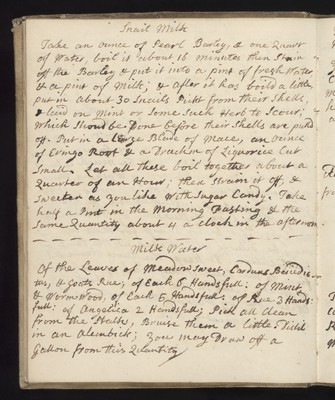 Snail Milk
Take an ounce of Pearl Barley, & one Quart
of Water, boil it about 16 minutes then Strain
off the Barley & put it into a pint of fresh Water,
& a pint of Milk; & after it has boild a little,
put in about 30 Snails Pickt from their Shells,
& laid on Mint or some Such Herb to Scour;
which Shoud be Done before their Shells are puld
off. Put in a Large Blade of Mace, an ounce
of Eringo Root & a Drachm of Liquorice Cut
Small. Let all these boil together about a
Quarter of an Hour; then strain it off, &
sweeten as you like with Sugar Candy. Take
half a Pint in the Morning Fasting & the
Same Quantity about 4 a clock in the afternoon
Milk Water
Of the Leaves of Meadow Sweet, Carduus Benedic-
tus, & Goats Rue; of Each 6 Handsfull: of Mint,
& Wormwood, of Each 5 Handsfull: of Rue 3 Hands-
full: of Angelica 2 Handsfull; Pick all Clean
from the Stalks, Bruise them a little Still
in an Alembick; you may Draw off a
Gallon from this Quantity